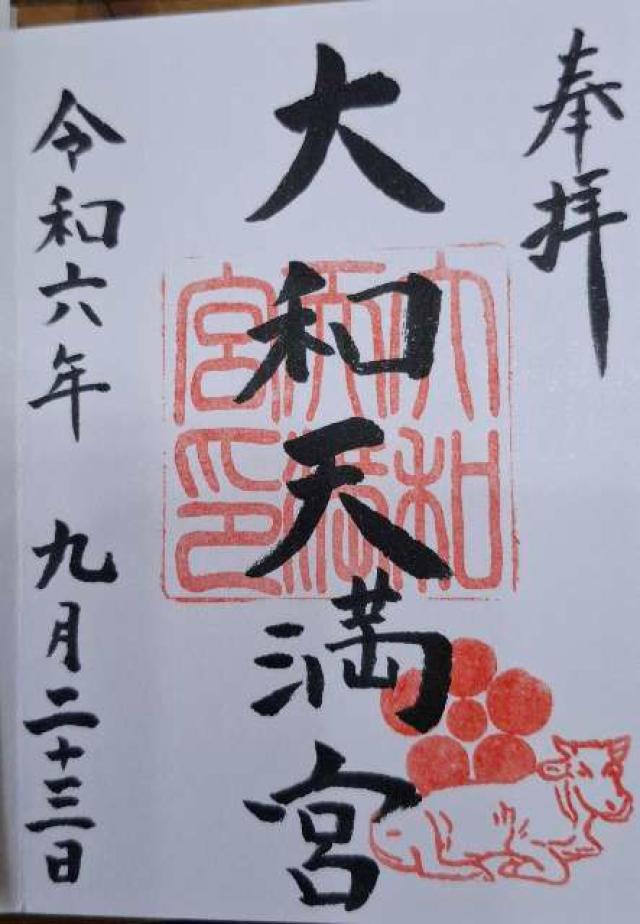 奉拝
大和天満宮
大和天満宮印
令和六年 九月二十三日